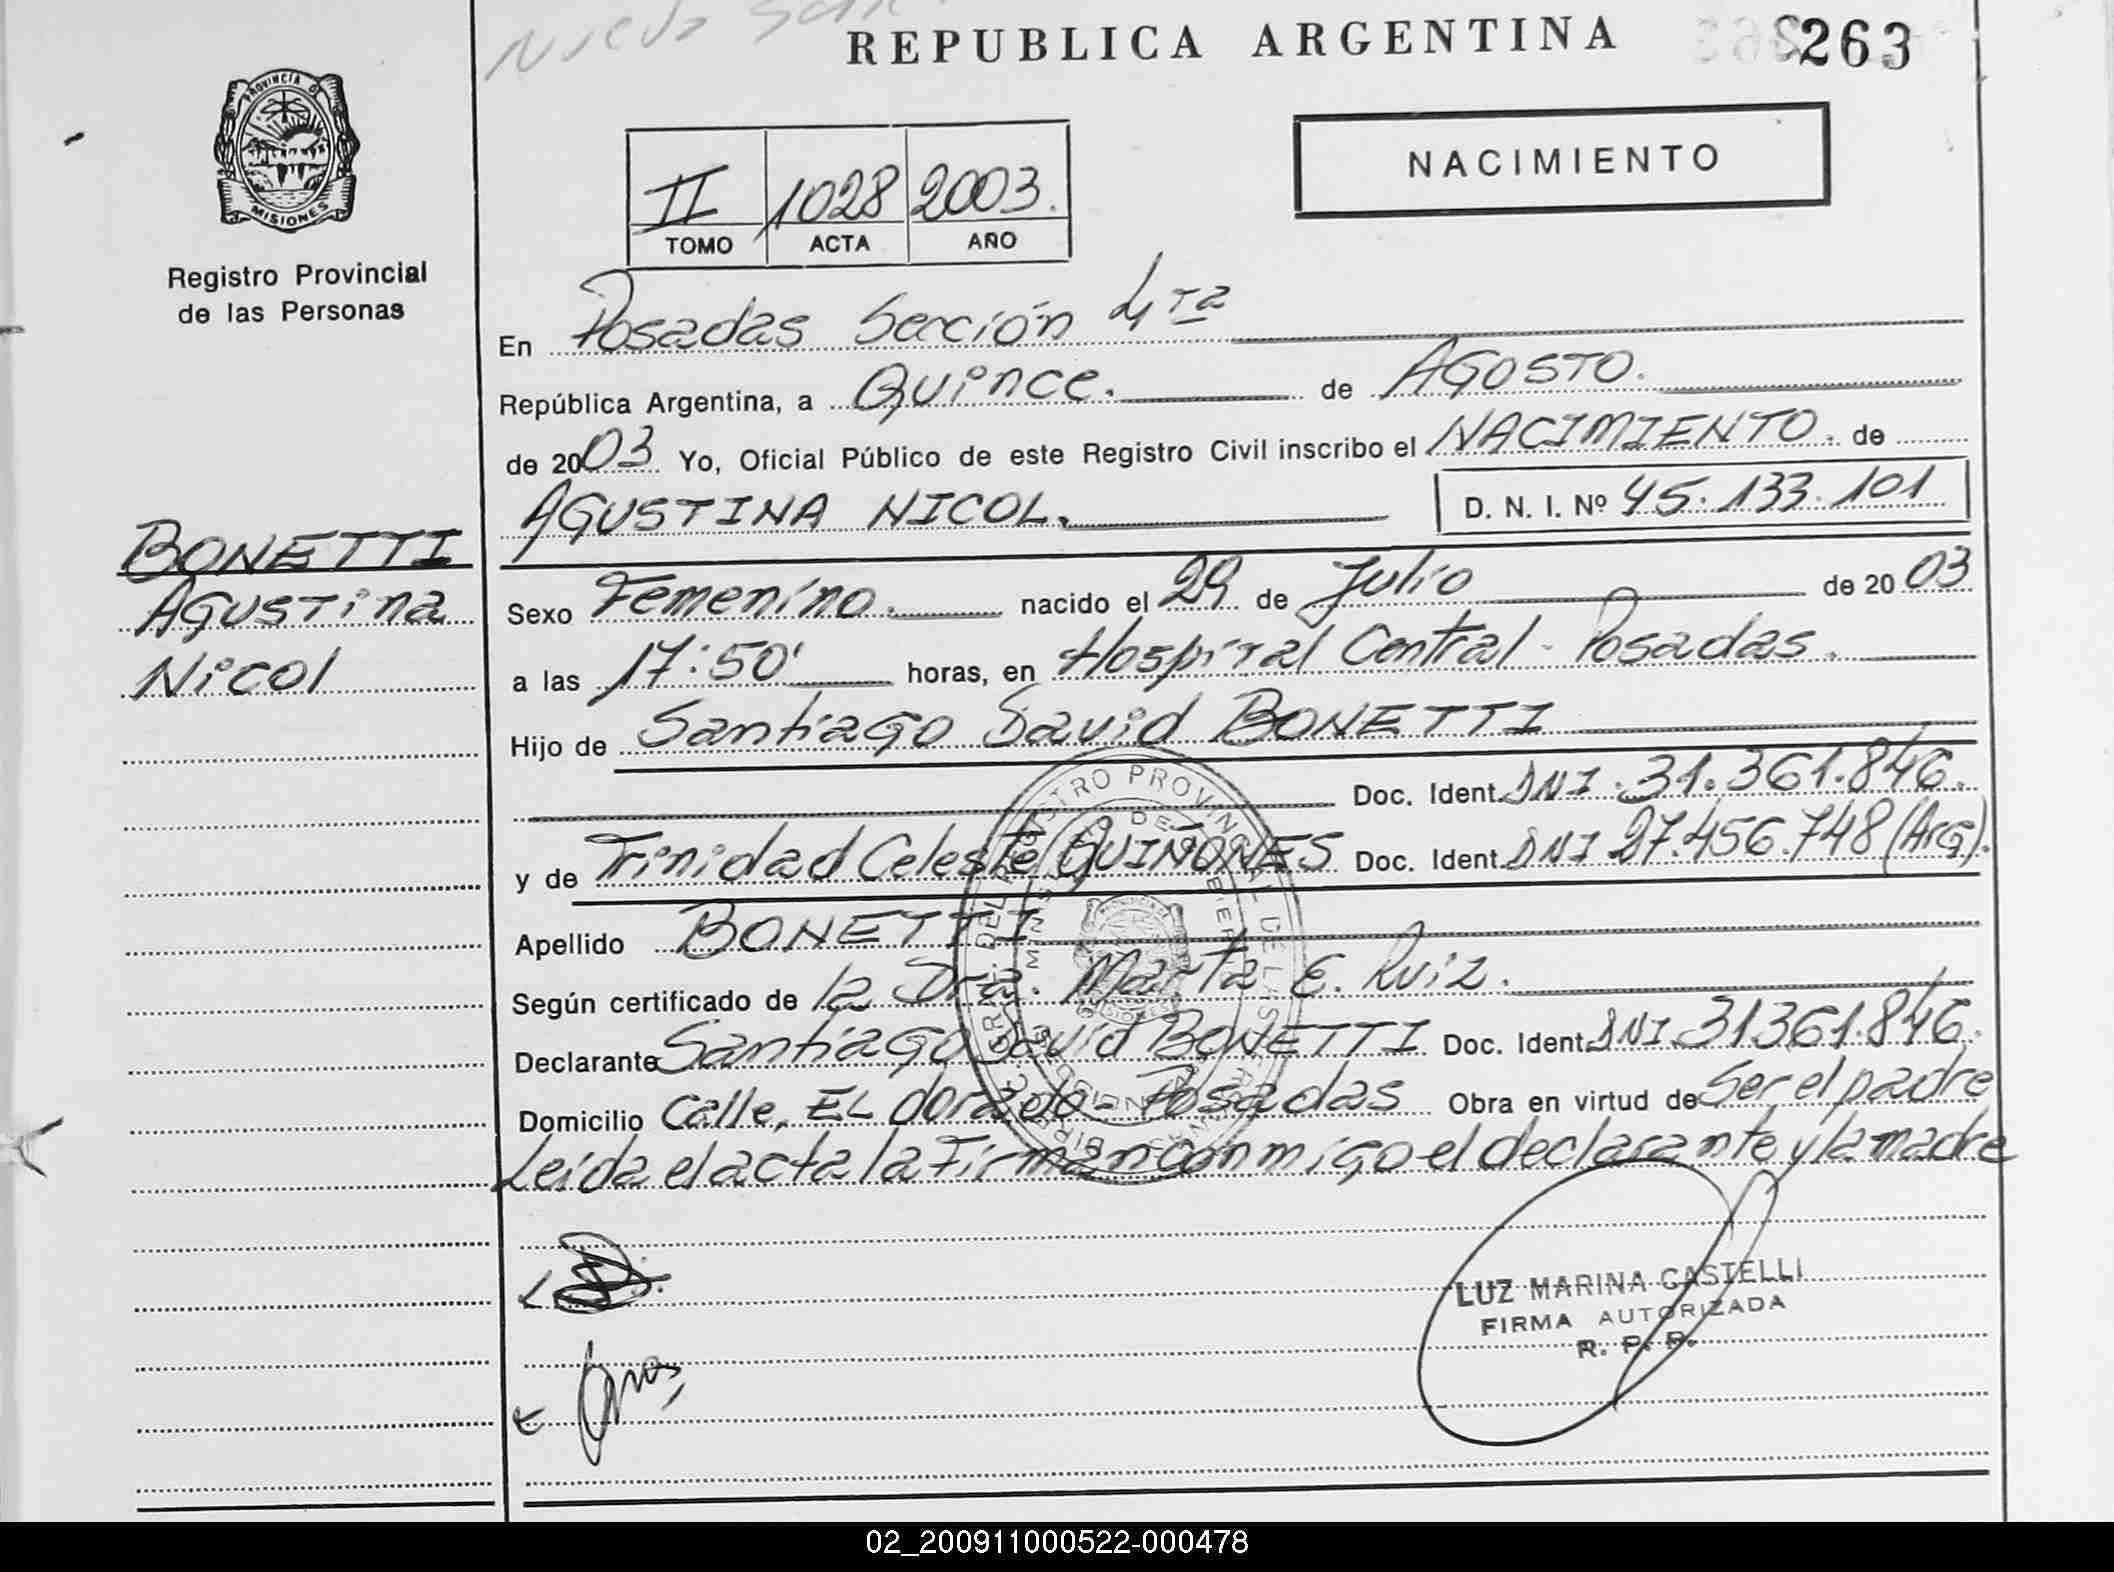 Nueva
REPUBLICA ARGENTINA
263
PROVINCIA DE
MISIONES
Registro Provincial
de las Personas
II 1028 2003.
TOMO ACTA AÑO
NACIMIENTO
En Posadas Sección 4ta
República Argentina, a Quince. de AGOSTO.
de 2003 Yo, Oficial Público de este Registro Civil inscribo el NACIMIENTO. de
AGUSTINA NICOL. D. N. I. Nº 45.133.101
BONETTI
AGUSTina
Nicol
Sexo Femenino. nacido el 29 de Julio de 2003
a las 17:50' horas, en Hospital Central - Posadas.
Hijo de Santiago David BONETTI
Doc. Ident. DNI. 31.361.846.
y de Trinidad Celeste QUIÑONES Doc. Ident. DNI 27.456.748 (Arg).
Apellido BONETTI
Según certificado de la Dra. Marta E. Ruiz.
Declarante Santiago David BONETTI Doc. Ident. DNI 31361.846.
Domicilio Calle, EL dorado - Posadas Obra en virtud de Ser el padre
Leída el acta la Firman conmigo el declarante y la madre
LUZ MARINA CASTELLI
FIRMA AUTORIZADA
R. P. P.
02_200911000522-000478